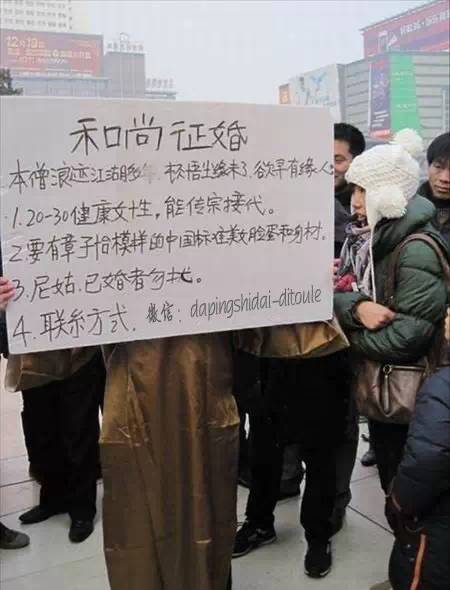 12月19
和尚征婚
本僧浪迹江湖 悟出缘未了.欲寻有缘人
1.20-30健康女性,能传宗接代。
2.要有章子怡模样的中国标准美女脸蛋和身材。
3.尼姑.已婚者勿扰。
4.联系方式. 微信: dapingshidai-ditoule